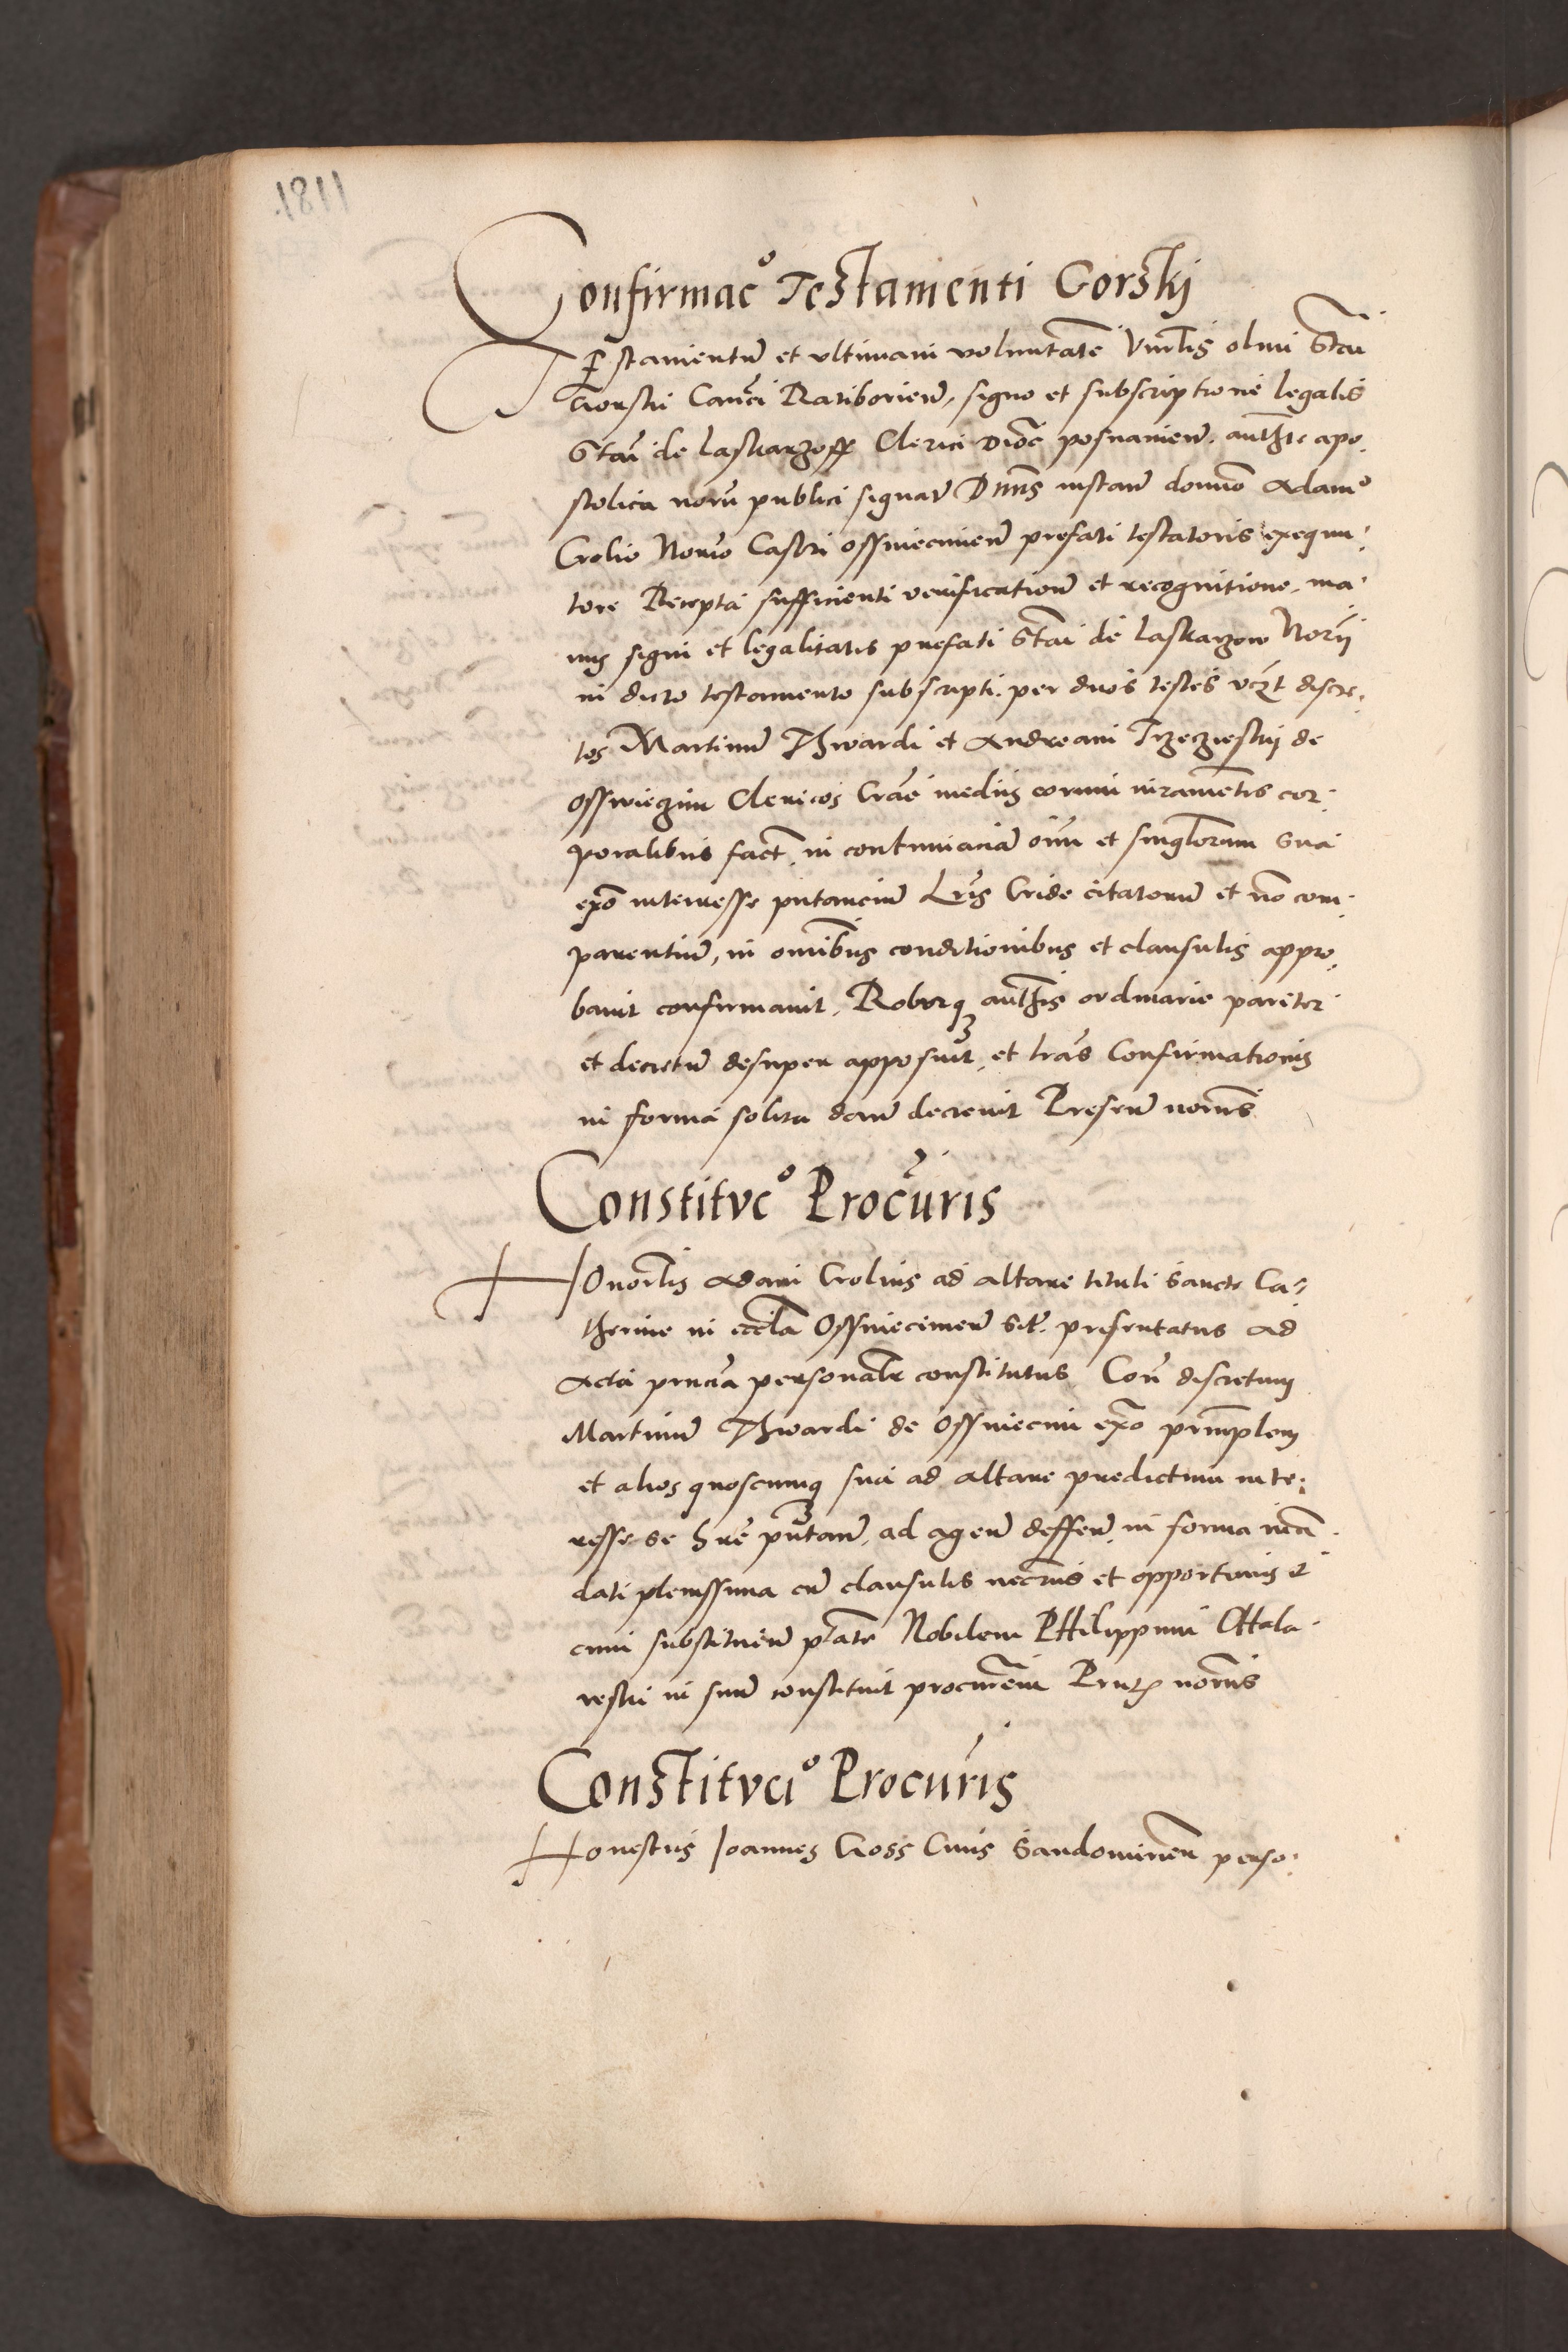 1181.
Confirmac° Testamenti Gorskij
Testamentu et ultimam voluntate Vnlis olim Stai
Gorski Canci Ratiborien, signo et subscriptione legalis
Stai de Laskarzoff Clerici dioc posnanien. authte apo,
stolica noru publici signat Dnns instan domno Adamo
Crolio Norio Castri Osswiecimen prefati testatoris exequu,
tore Recepta sufficienti verification et recognitione, ma,
nus signi et legalitatis prefati Stai de Laskarzow Norii
in dicto testamento subscripti. per duos testes vczt discre,
tos Martinu Thwardi et Andream Trzeczieskij de
Osswieczim Clericos Crac mediis eorum iuramentis cor,
poralibus fact. in contumacia oim et singlorum sua
expo interesse putanciu Lris Cride citatoru et no com,
parentiu, in omibus conditionibus et clausulis appro,
bavit confirmavit, Roborq authis ordinarie pariter
et decretu desuper apposuit, et lras Confirmationis
in forma solita dan decrevit Presen nonis
Constituc° Procuris
Honorlis Adam Crolius ad altare tituli Sancte Ca,
therine in eccla Osswiecimen sit. presentatus ad
Acta pnncia personalr constitutus Con discretum
Martinu Thwardi de Osswiecim expo prnnplem
et alios quoscunq sua ad altare predictum inte,
resse se hre putan, ad agen deffen. in forma man
dati plenissima cu clausulis necriis et opportunis et
cum substituen ptate Nobilem Philippum Ottala
reski in suu constituit procurem Prntz nonis
Constituci° Procuris
Honestus Joannes Goss Civis Sandomirien perso,